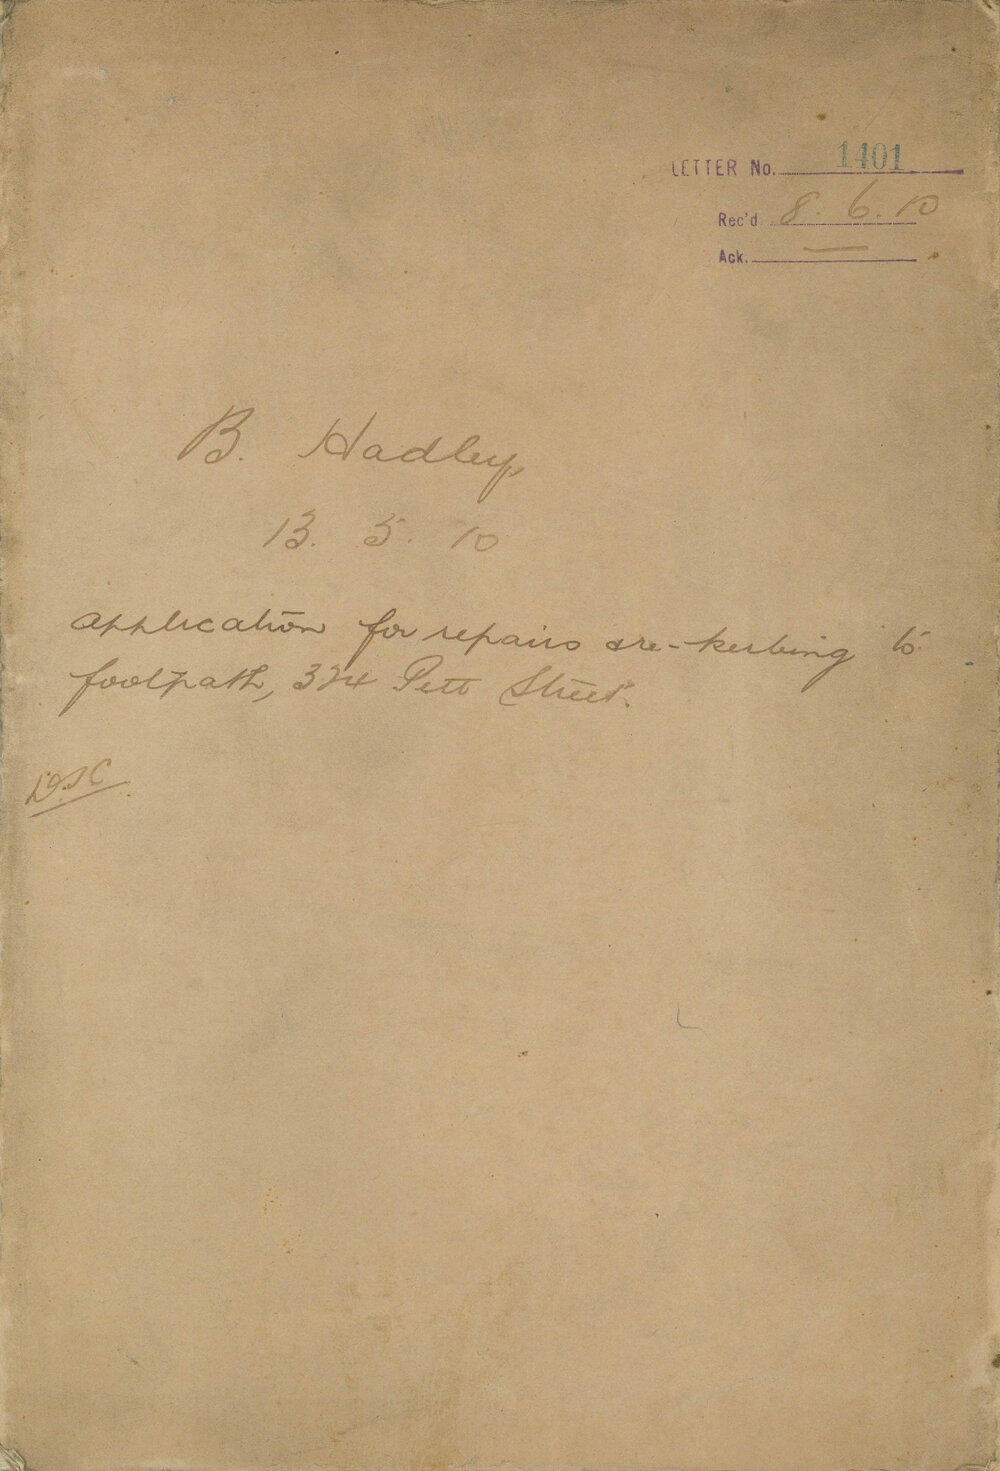 LETTER No. 1401
Rec'd 8. 6. 10
Ack. —
B. Hadley,
13. 5. 10
application for repairs & re-kerbing to
footpath, 324 Pitt Street.